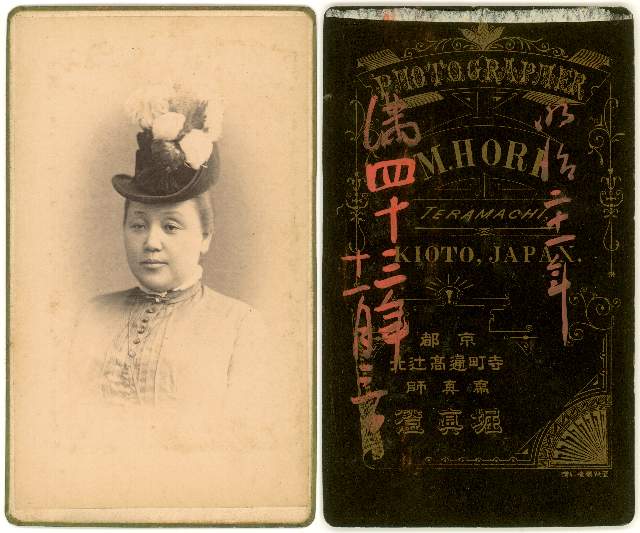 PHOTOGRAPHER
M.HORI
TERAMACHI.
KIOTO, JAPAN.
京都
寺町通高辻北
寫真師
堀真澄
明治二十一年
満四十三年
十一月三日